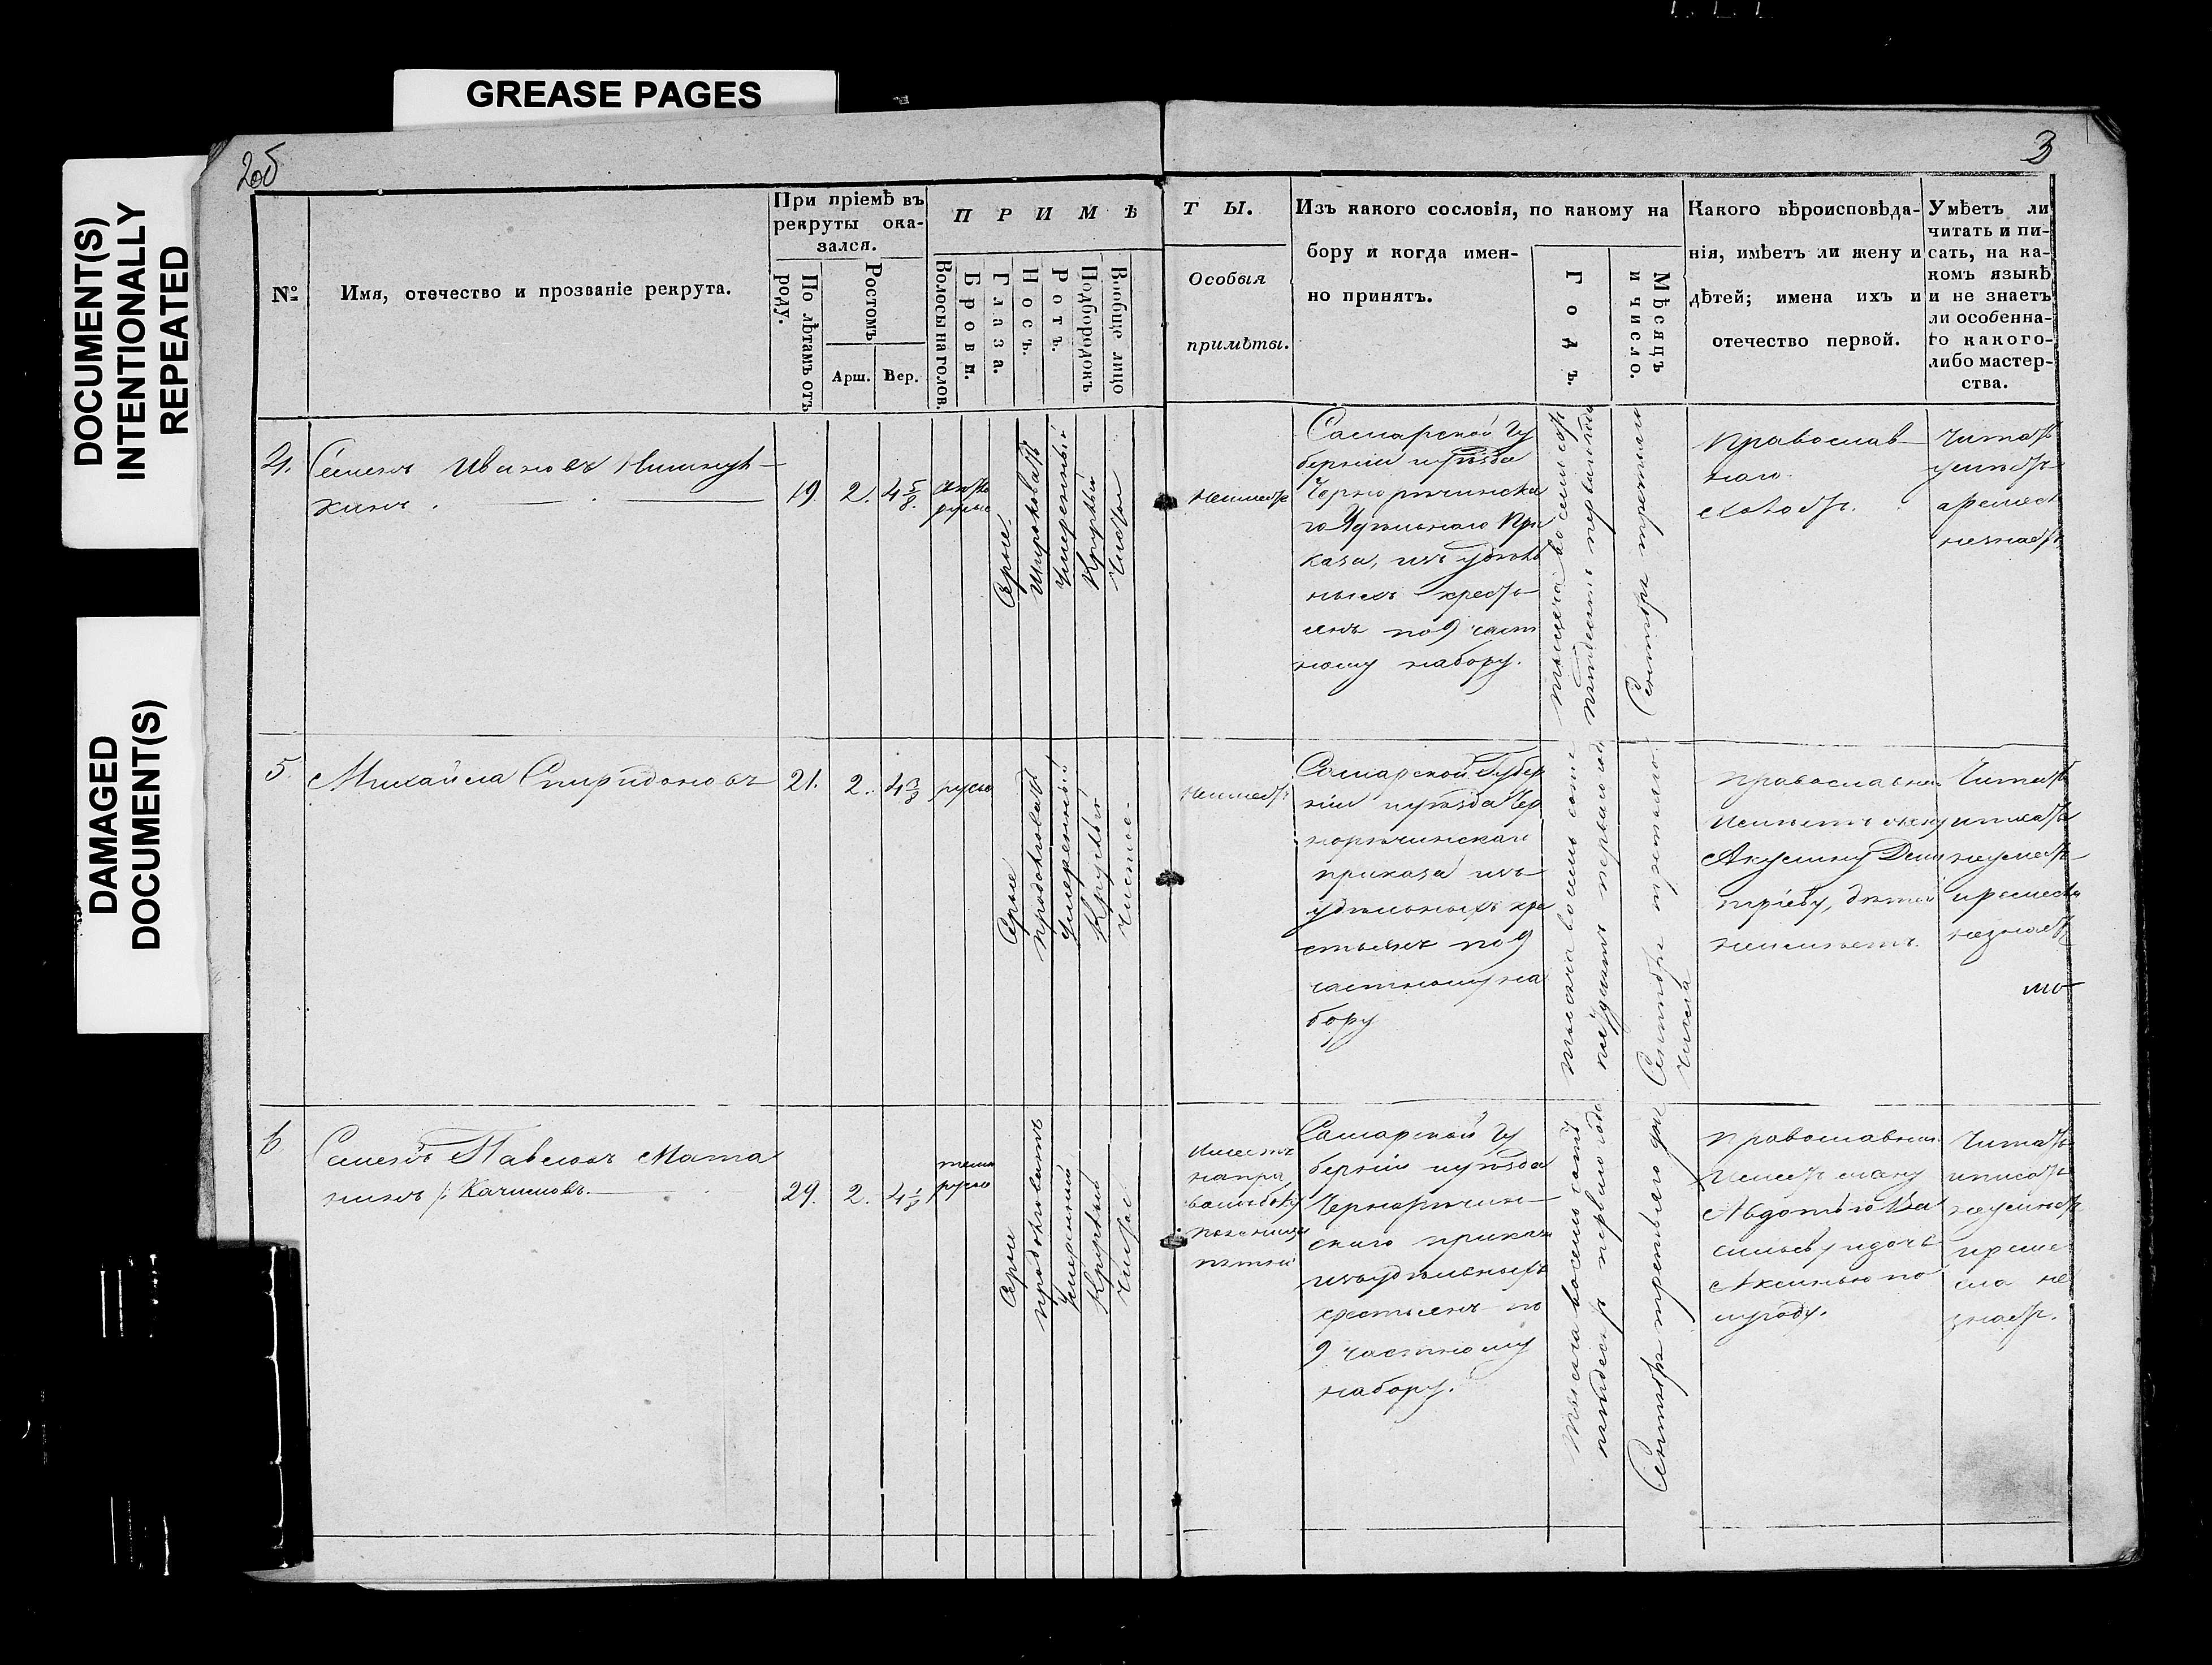 GREASE PAGES
DOCUMENT(S)
INTENTIONALLY
REPEATED
DAMAGED
DOCUMENT(S)
2об
3
№
Имя, отечество и прозваніе рекрута.
При пріемѣ въ
рекруты ока-
зался.
По лѣтамъ отъ
роду.
Ростомъ
Арш.
Вер.
П Р И М Ѣ
Т Ы.
Волосы на голов.
Брови.
Глаза.
Носъ.
Ротъ.
Подбородокъ
Вообще лицо
Особыя
примѣты.
Изъ какого сословія, по какому на
бору и когда имен-
но принятъ.
Годъ.
Мѣсяцъ
и число.
Какого вѣроисповѣда-
нія, имѣетъ ли жену и
дѣтей; имена ихъ и
отечество первой.
Умѣетъ ли
читать и пи-
сать, на ка-
комъ языкѣ
и не знаетъ
ли особенна-
го какого-
либо мастер-
ства.
4.
Семенъ Ивановъ
19
2.
4 5/8
русые
Серые
Широковатъ
Умеренный
Круглый
Чистое
Неимеетъ
Самарской Гу
берніи и уѣзда
Чернорѣчинска
го Удѣльнаго При
каза, изъ удѣль
ныхъ кресть
янъ по 9 част
ному набору.
тысяча восемь сотъ
пятдесятъ перваго года
Сентября третьяго
Православ
наго
холостъ.
Читать
незнаетъ
5
Михайла Спиридоновъ
21.
2.
4 3/8
русые
Серые
продолговатъ
умеренный
Круглый
чистое.
Неимеетъ
Самарской Губер
ніи и уѣзда Чер
норѣчинскаго
приказа изъ
удѣльныхъ кре
стьянъ по 9
частному на
бору
тысяча восемь сотъ
пятдесятъ перваго года
Сентября третьяго
числа
православнаго
имѣетъ жену
Акулину Дми
тріеву, дѣтей
неимѣетъ.
Читать
и писать
неумеетъ
незнаетъ
6
Семенъ Павловъ Мата
кинъ
29.
2.
4 1/8
темно
русые
Серые
продолговатъ
умеренный
Круглый
Чистое
Имеетъ
на пра
вомъ боку
Самарской Гу
берніи и уѣзда
Чернорѣчин
скаго приказа
изъ удѣльныхъ
крестьянъ по
9 частному
набору.
Тысяча восемь сотъ
пятдесятъ перваго года
Сентября третьяго дня
православнаго
Имеетъ жену
Авдотью Ва
сильеву и дочь
Аксинью по
Читать
и писать
неумѣетъ
и реме
сла не
знаетъ.